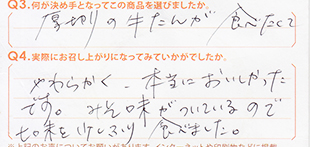 Q3.何が決め手となってこの商品を選びましたか。
厚切りの牛たんが 食べたくて
Q4.実際にお召し上がりになってみていかがでしたか。
やわらかく、本当においしかった
です。みそ味がついているので
七味を少しふり 食べました。